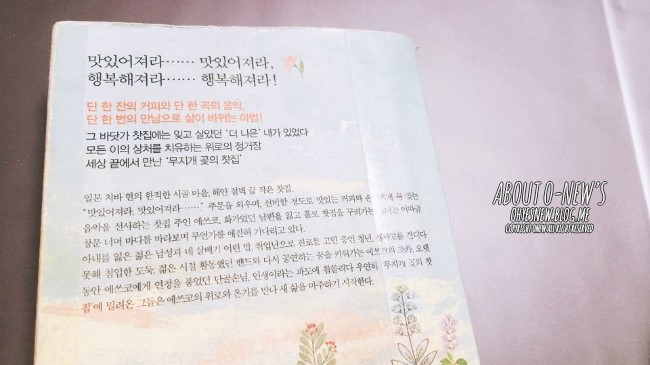 맛있어져라…… 맛있어져라,
행복해져라…… 행복해져라!
단 한 잔의 커피와 단 한 곡의 음악,
단 한 번의 만남으로 삶이 바뀌는 마법!
그 바닷가 찻집에는 잊고 살았던 '더 나은' 내가 있었다
모든 이의 상처를 치유하는 위로의 정거장
세상 끝에서 만난 '무지개 곶의 찻집'
일본 치바 현의 한적한 시골 마을, 해안 절벽 끝 작은 찻집.
"맛있어져라, 맛있어져라……" 주문을 외우며, 신비할 정도로 맛있는 커피와 꼭 맞는
음악을 선사하는 찻집 주인 에쓰코, 화가였던 남편을 잃고 홀로 찻집을 꾸리는
창문 너머 바다를 바라보며 무언가를 애전히 기다리고 있다.
아내를 잃은 젊은 남성과 네 살배기 어린 딸, 취업난으로 진로를 고민 중인 청년, 견디다
못해 침입한 도둑, 젊은 시절 활동했던 밴드와 다시 공연하는 꿈을 키워가는 에쓰코의 조카, 오랫
동안 에쓰코에게 연정을 품었던 단골손님, 인생이라는 파도에 휩쓸리다 우연히 '무지개 곶의 찻
집'에 밀려온 그들은 에쓰코의 위로와 온기를 만나 새 삶을 마주하기 시작한다.
ABOUT O-NEW'S
OHYESNEW.BLOG.ME